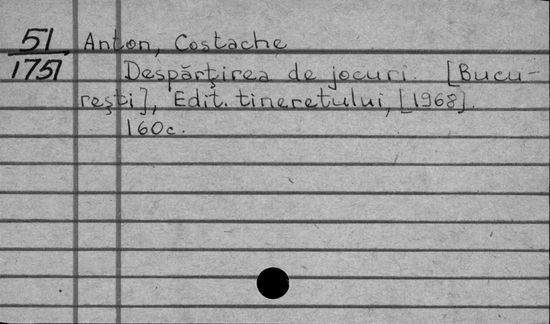 51
1751
Anton, Costache
Despărţirea de jocuri. [Bucu-
reşti], Edit. tineretului, [1968].
160c.